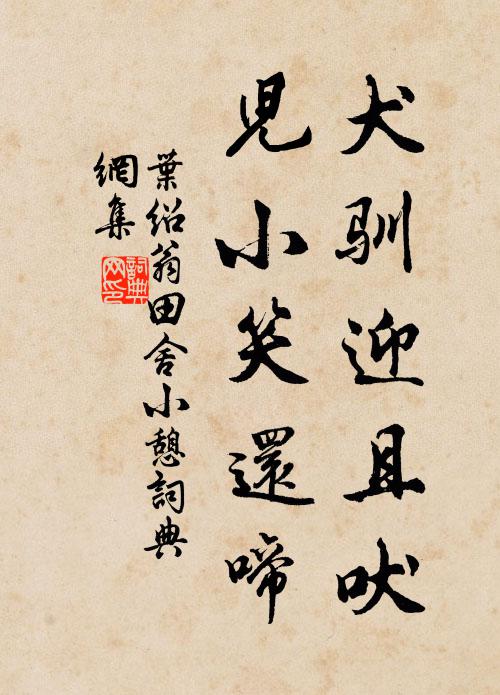 犬驯迎且吠
兒小笑還啼
葉紹翁田舍小憩詞典
網集
詞典
网印